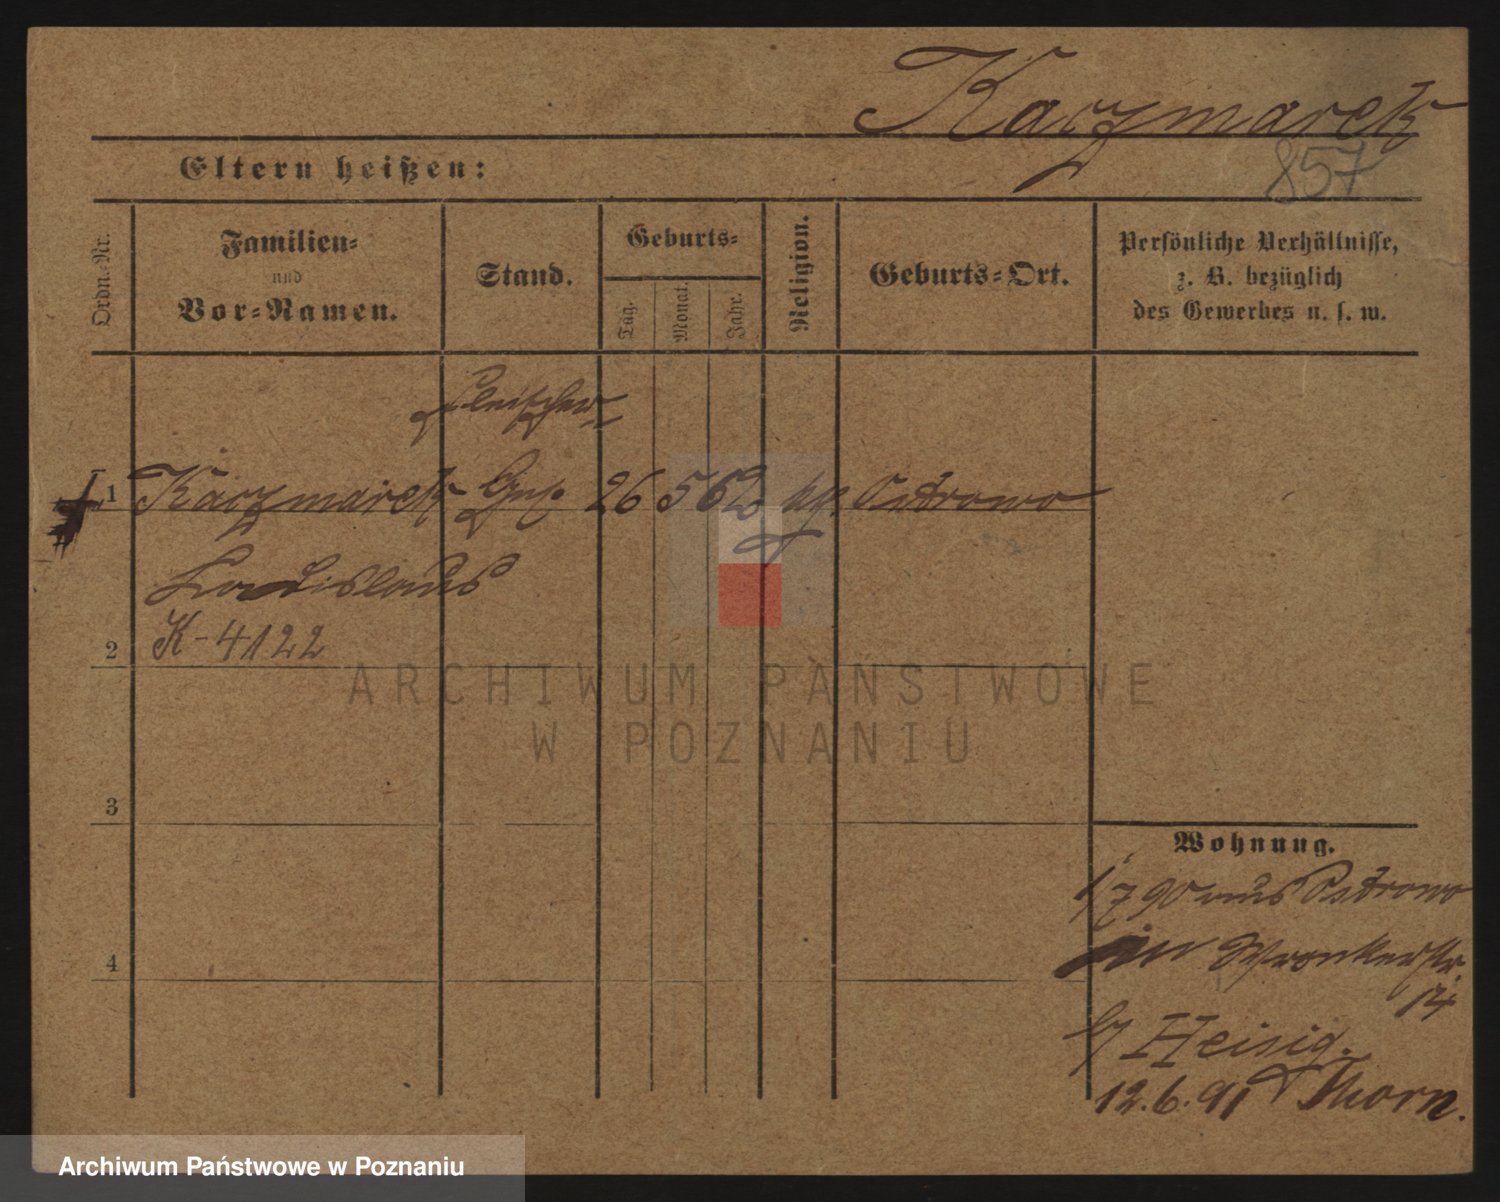 Kaczmarek
857
Eltern heißen:
Ordn.-Nr.
Familien-
und
Vor-Namen.
Stand.
Geburts-
Tag.
Monat.
Jahr.
Religion.
Geburts-Ort.
Persönliche Verhältnisse,
z. B. bezüglich
des Gewerbes u. s. w.
Fleischer
1 Kaczmarek Ges. 26 5 62 Ostrowo
Ladislaus
K-4122
2
ARCHIWUM PAŃSTWOWE
W POZNANIU
3
Wohnung.
1/7 90 aus Ostrowo
4
in Wronkerstr.
14
b/ Heisig.
12.6.91 Thorn.
Archiwum Państwowe w Poznaniu